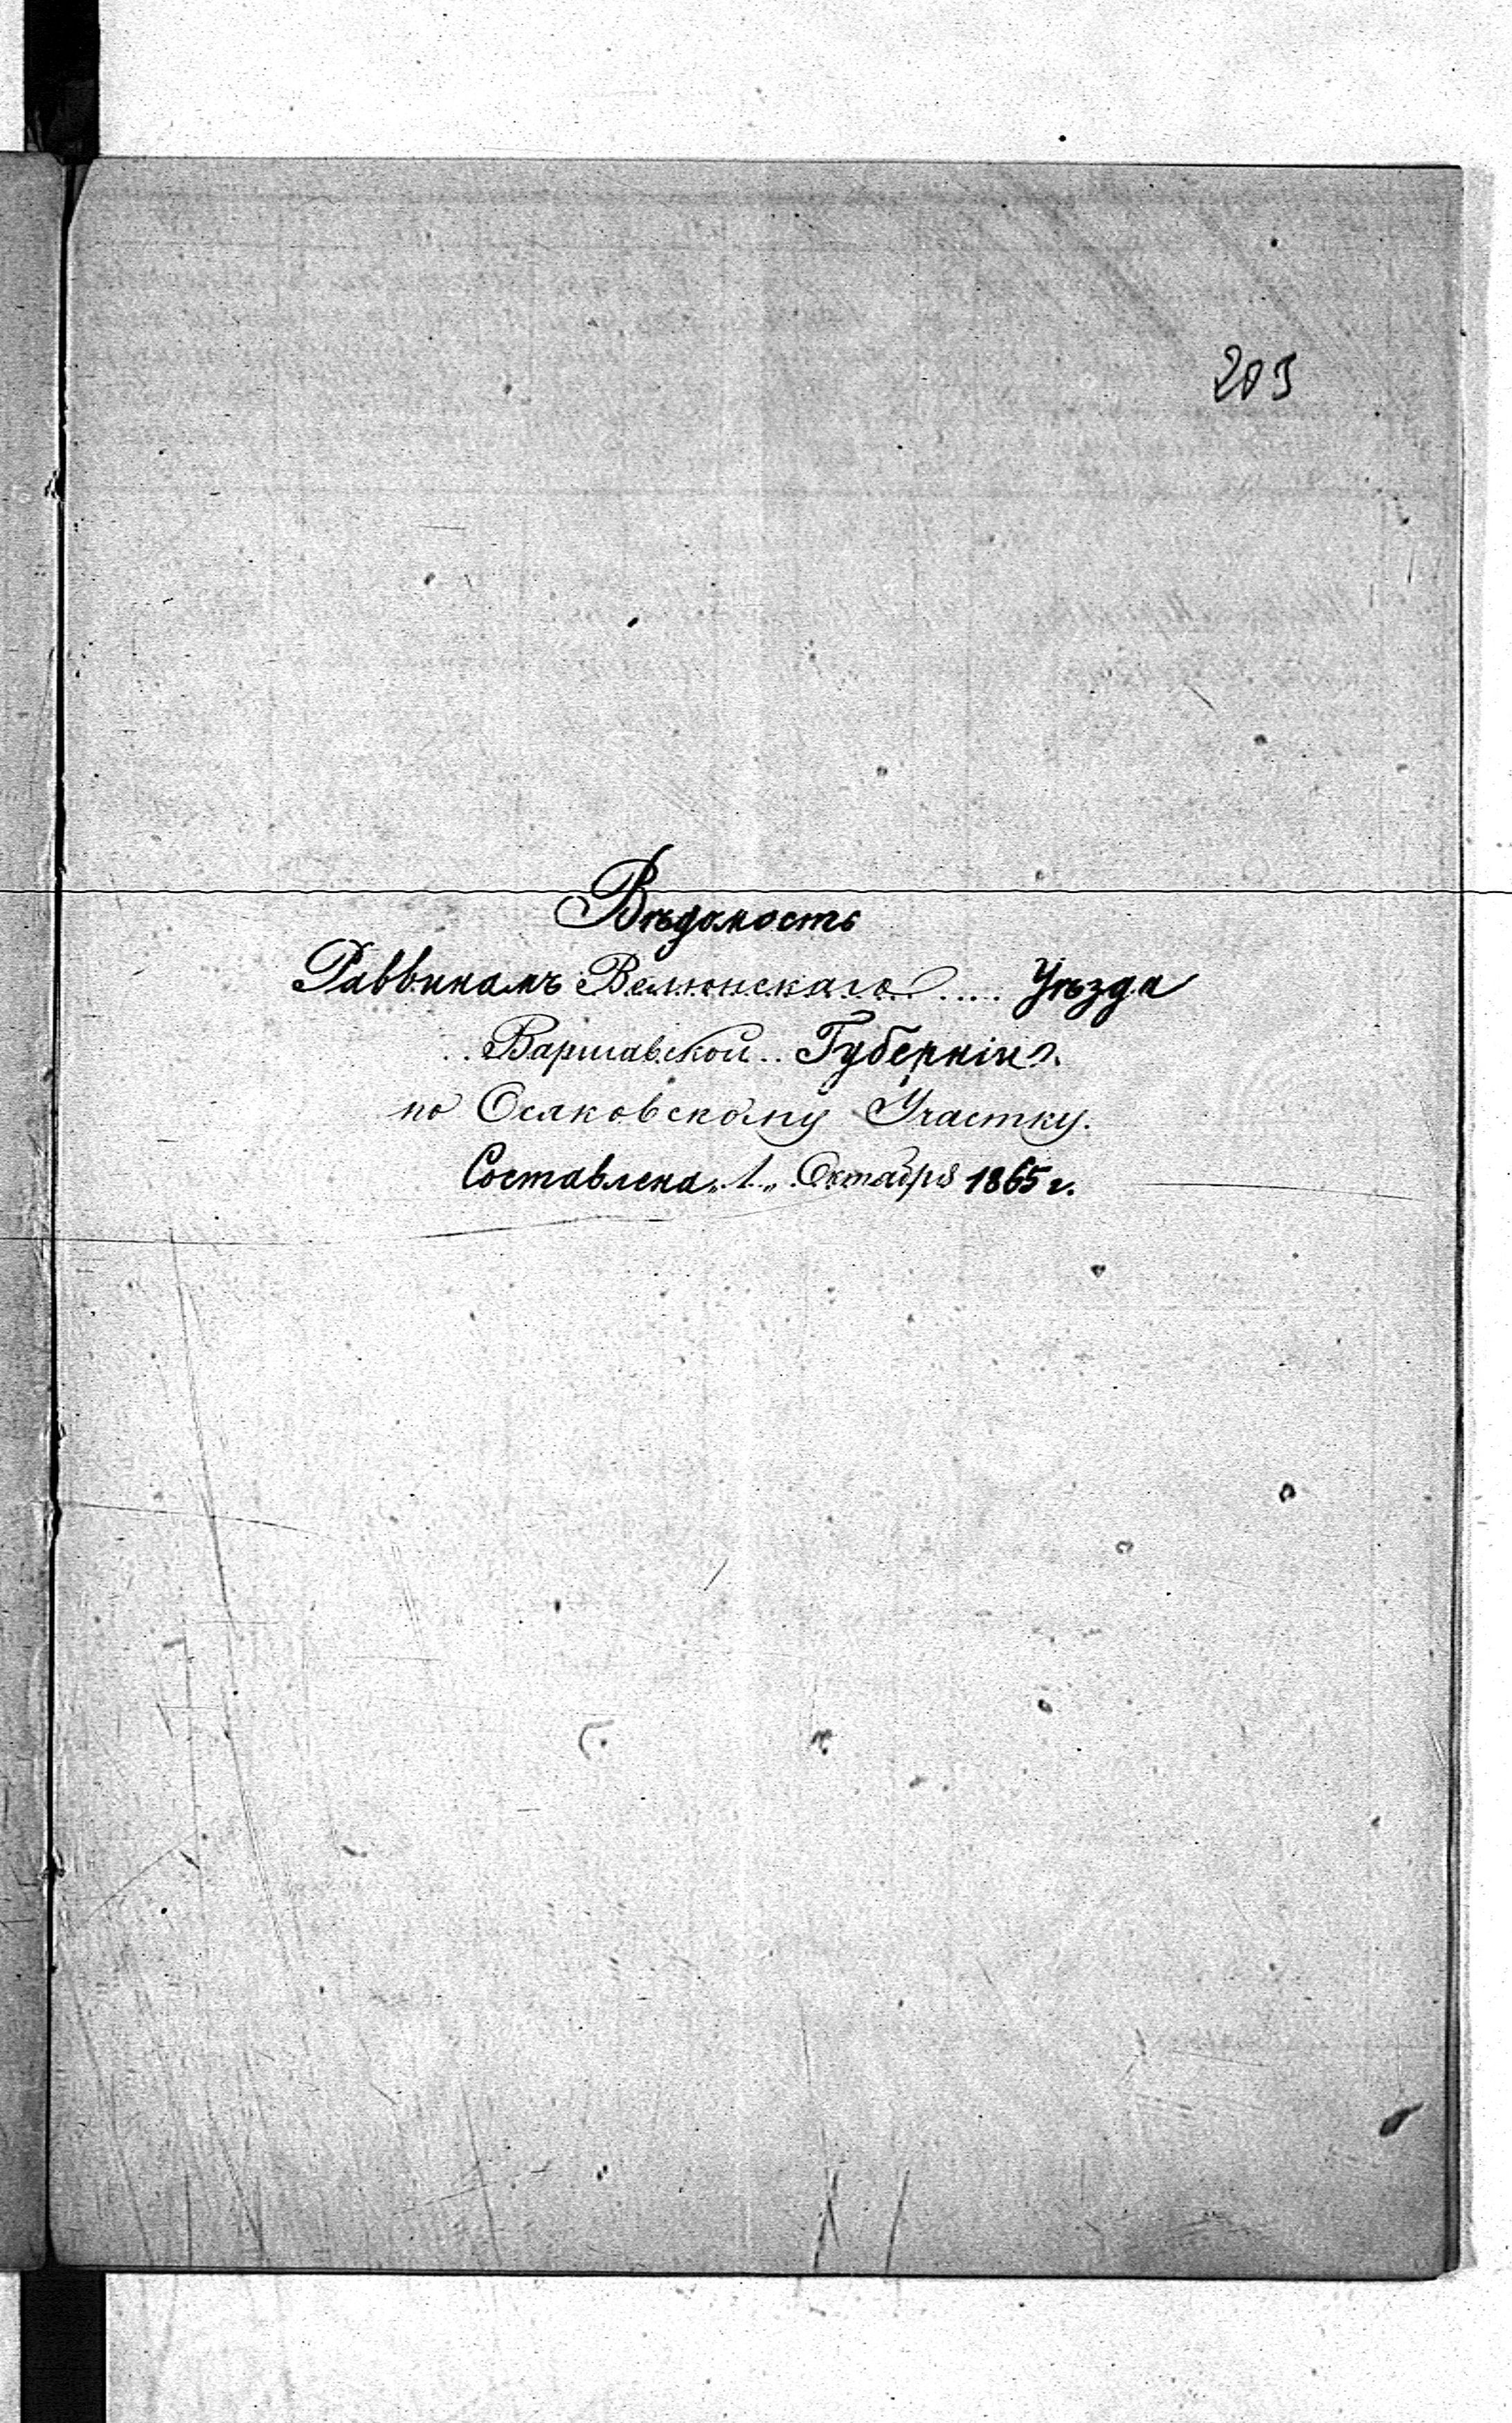 203
Вѣдомость
Раввинамъ Велюнскаго ..... Уѣзда
.. Варшавской .. Губерніи.
по Осяковскому Участку.
Составлена „1„ Октября 1865 г.